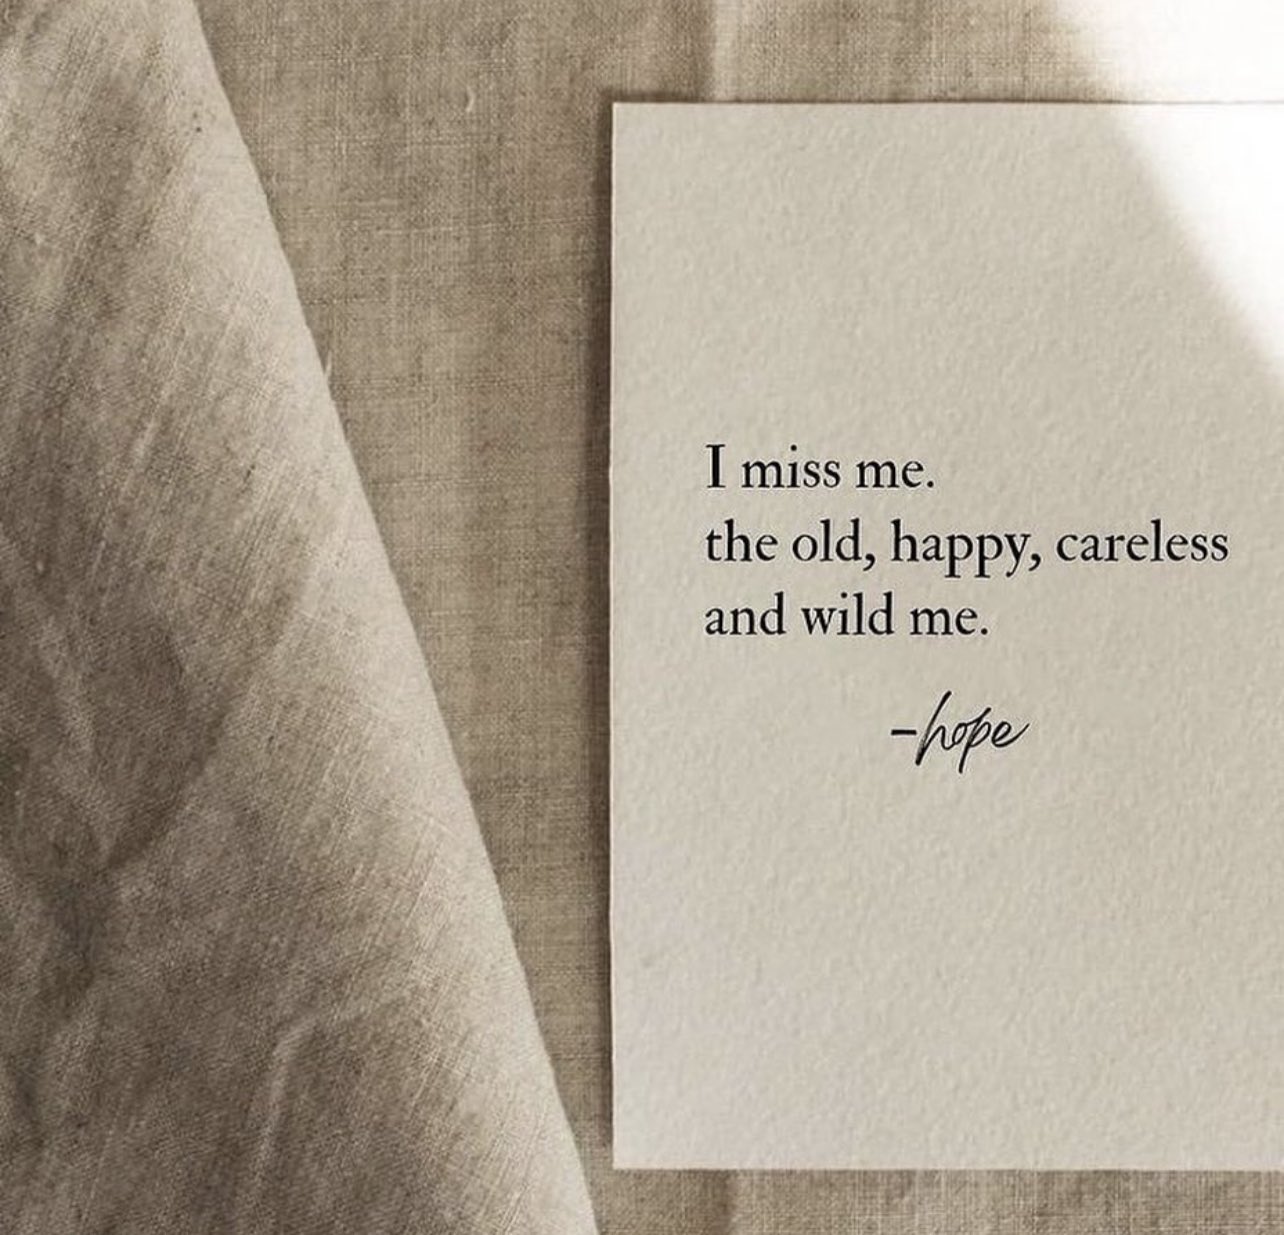 I miss me.
the old, happy, careless
and wild me.
-hope